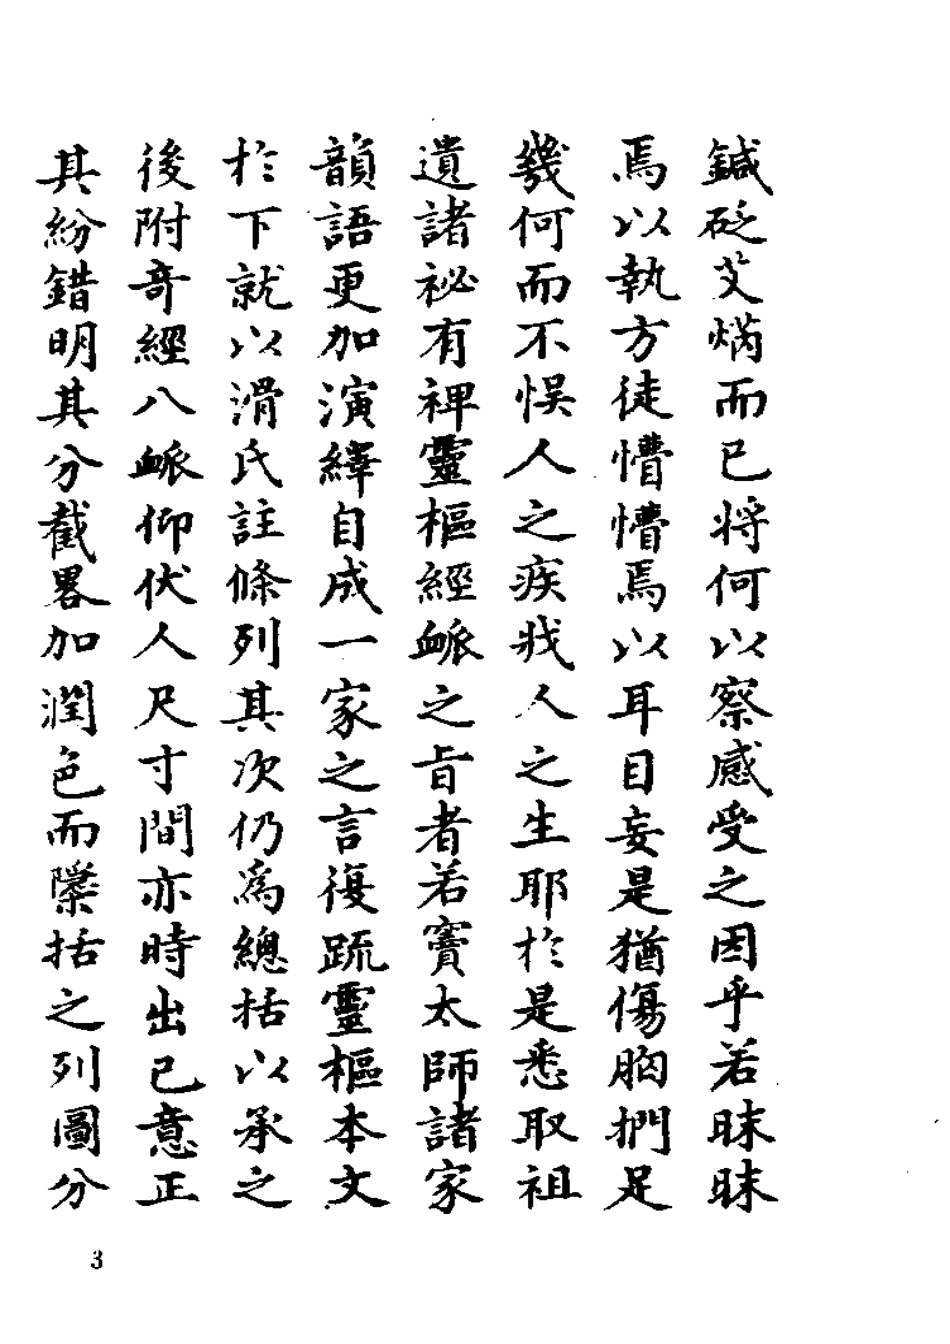 鍼砭艾焫而已將何以察感受之因乎若昧昧
焉以執方徒懵懵焉以耳目妄是猶傷胸捫足
幾何而不悮人之疾戕人之生耶於是悉取祖
遺諸祕有裨靈樞經脈之旨者若竇太師諸家
韻語更加演繹自成一家之言復疏靈樞本文
於下就以滑氏註條列其次仍爲總括以承之
後附竒經八脈仰伏人尺寸間亦時出己意正
其紛錯明其分截畧加潤色而檃括之列圖分
3